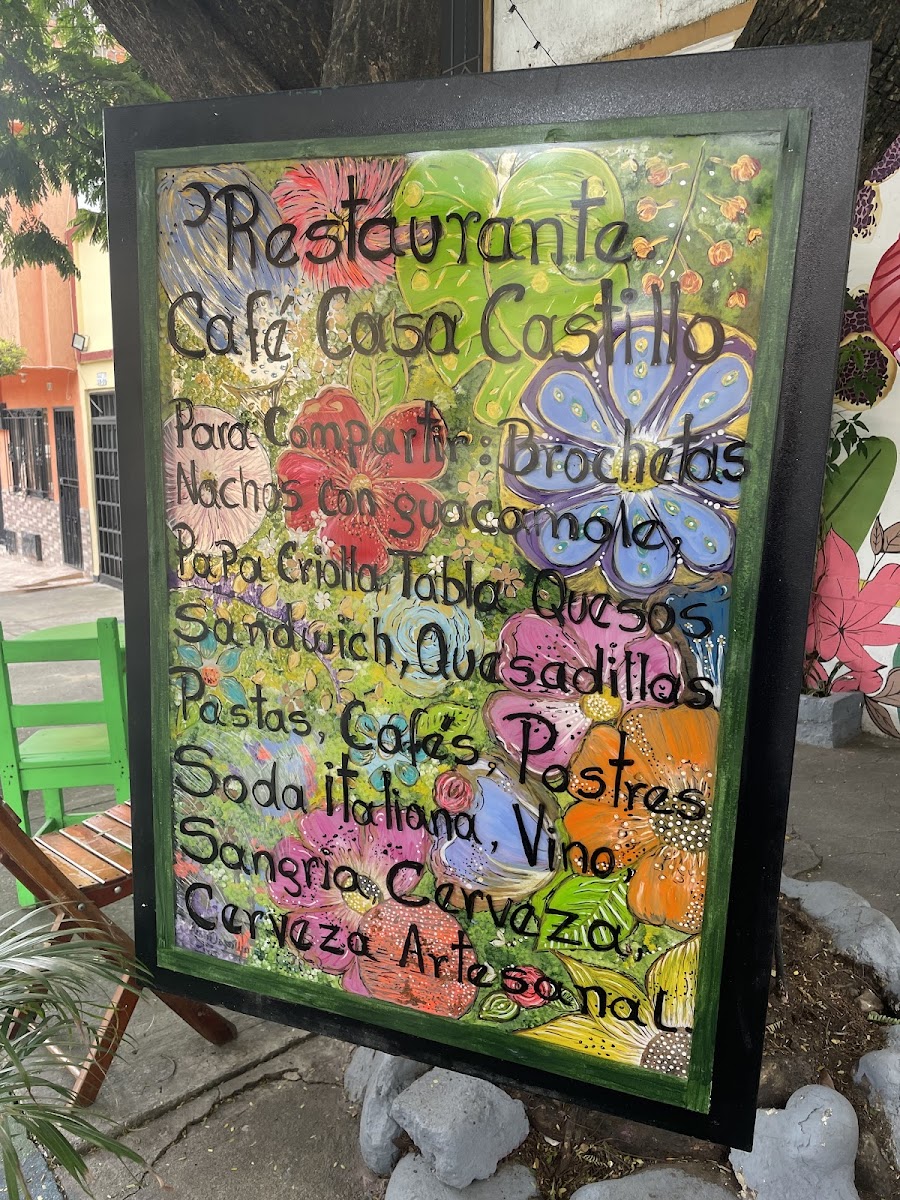 Restaurante.
Café Casa Castillo
Para Compartir: Brochetas
Nachos con guacamole,
Papa Criolla, Tabla Quesos
Sandwich, Quesadillas
Pastas, Cafés, Postres
Soda italiana, Vino,
Sangria, Cerveza,
Cerveza Artesanal